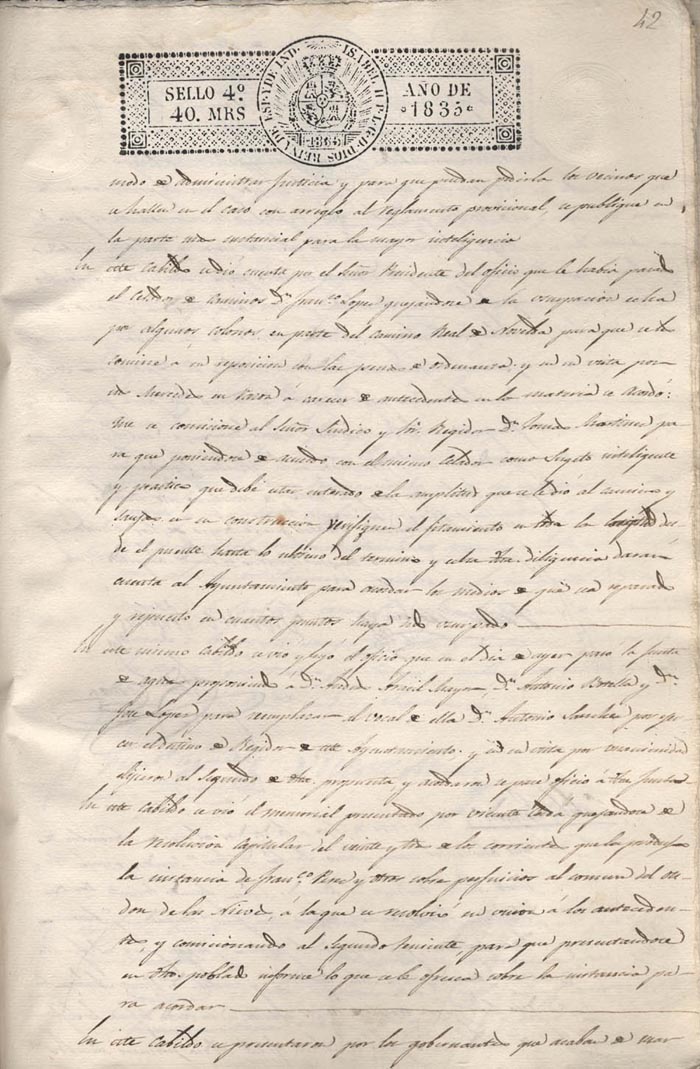 42
SELLO 4º
40. MRS
ISABEL II P. L. G. D. DIOS REINA DE ESP. Y DE IND.
1835
AÑO DE
1835
modo de administrar Justicia y para que puedan pedirla los vecinos que
se hallen en el caso con arreglo al reglamento provisional, se publique en
la parte mas sustancial para la mayor inteligencia
En este Cabildo se dió cuenta por el Señor Presidente del oficio que le habia pasado
el Celador de Caminos Dn. Franco. Lopez quejandose de la ocupacion echa
por algunos colonos en parte del camino Real de Novelda para que se les
comine a su reposicion con las penas de ordenanza: y en su vista por
sus Mercedes en razon á carecer de antecedentes en la materia se Acordó:
Que se comisione al Señor Sindico y Sor. Regidor Dn. Tomas Martinez pa
ra que poniendose de acuerdo con el mismo Celador como Sugeto inteligente
y practico que debe estar enterado de la amplitud que se le dió al camino y
en su construccion verifiquen el fitamiento en toda la longitud des
de el puente hasta lo ultimo del termino y echa dha. diligencia daran
cuenta al Ayuntamiento para acordar los medios de que sea reparado
y repuesto en cuantos puntos haya sido usurpado
En este mismo Cabildo se vió y leyó el oficio que en el dia de ayer pasó la Junta
de aguas proponiendo á Dn. Andres Amil Mayor, Dn. Antonio Botella y Dn.
Jose Lopez para reemplazar al vocal de ella Dn. Antonio Sanchez por ejer
cer el destino de Regidor de este Ayuntamiento: y en su vista por unanimidad
elijieron al segundo de dha. propuesta y acordaron se pase oficio á dha. Junta
En este Cabildo se vió el memorial presentado por Vicente quejandose de
la resolucion capitular del veinte y tres de los corrientes que la produjo
la instancia de Franco. Perez y otros sobre perjuicios al comun del
don de las Nieves, á la que se resolvió su union á los anteceden
tes, y comicionando al segundo teniente para que presentandose
en dho. poblado informe lo que se le ofresca sobre la instancia pa
ra acordar
En este Cabildo se presentaron por los gobernantes que acaban de mar